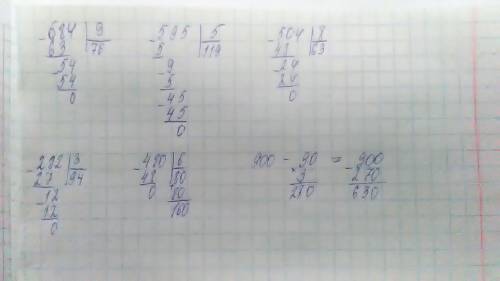 -684 | 9
63 | 76
-54
54
0
-595 | 5
5 | 119
-9
5
-45
45
0
-504 | 8
48 | 63
-24
24
0
-282 | 3
27 | 94
-12
12
0
-480 | 6
48 | 80
0
80
160
900 - 90 = 900
× 3
270
-270
630